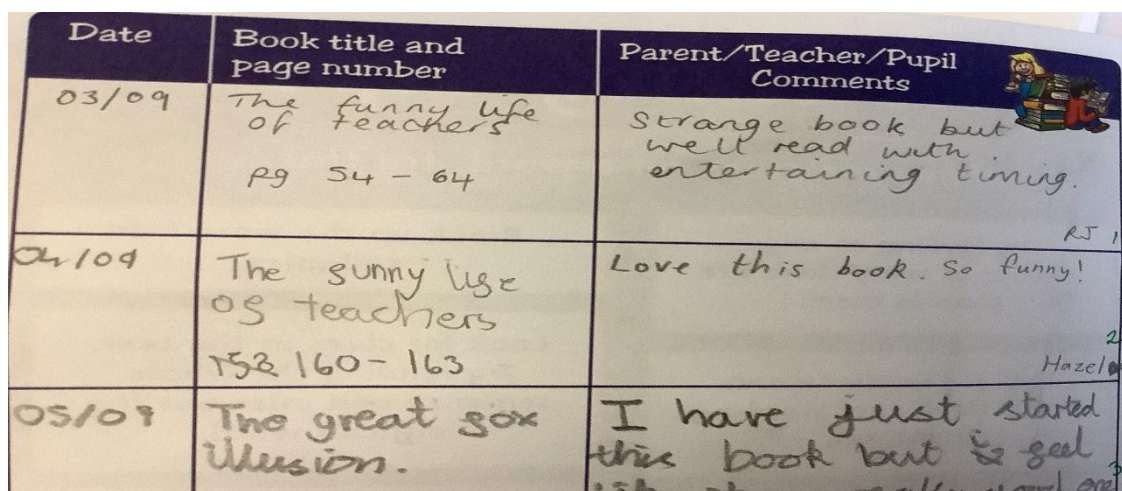 Date
Book title and
page number
Parent/Teacher/Pupil
Comments
03/09
The funny life
of teachers
pg 54 - 64
Strange book but
well read with
entertaining timing.
RJ 1
04/09
The funny life
of teachers
160 - 163
Love this book. So funny!
2
Hazel
05/09
The great fox
illusion.
I have just started
this book but feel
3